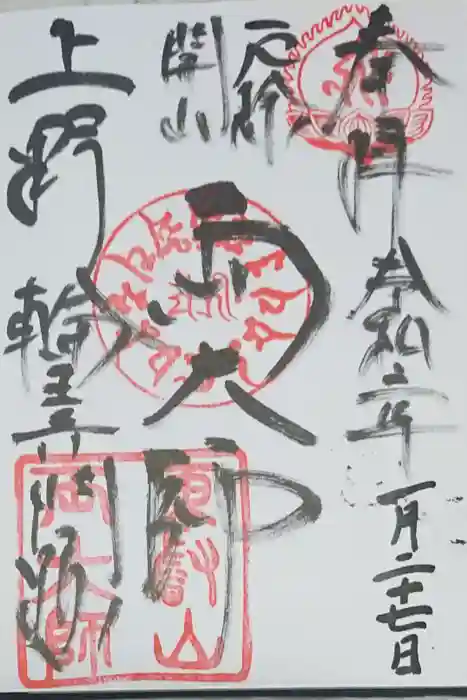 奉拝
令和二年
一月二十七日
開山
両大師
上野
輪王寺門跡
東叡山
両大師